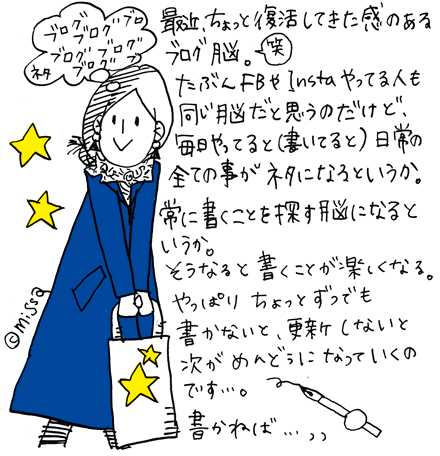 ブログ ブログ ブロ
ブログ ブログ
ブログ ブログ
ネタ
最近、ちょっと復活してきた感のある
ブログ脳。笑
たぶんFBやInstaやってる人も
同じ脳だと思うのだけど、
毎日やってると(書いてると)日常の
全ての事がネタになるというか。
常に書くことを探す脳になると
いうか。
そうなると書くことが楽しくなる。
やっぱりちょっとずつでも
書かないと、更新しないと
次がめんどうになっていくの
です…。
書かねば…、、
©missa